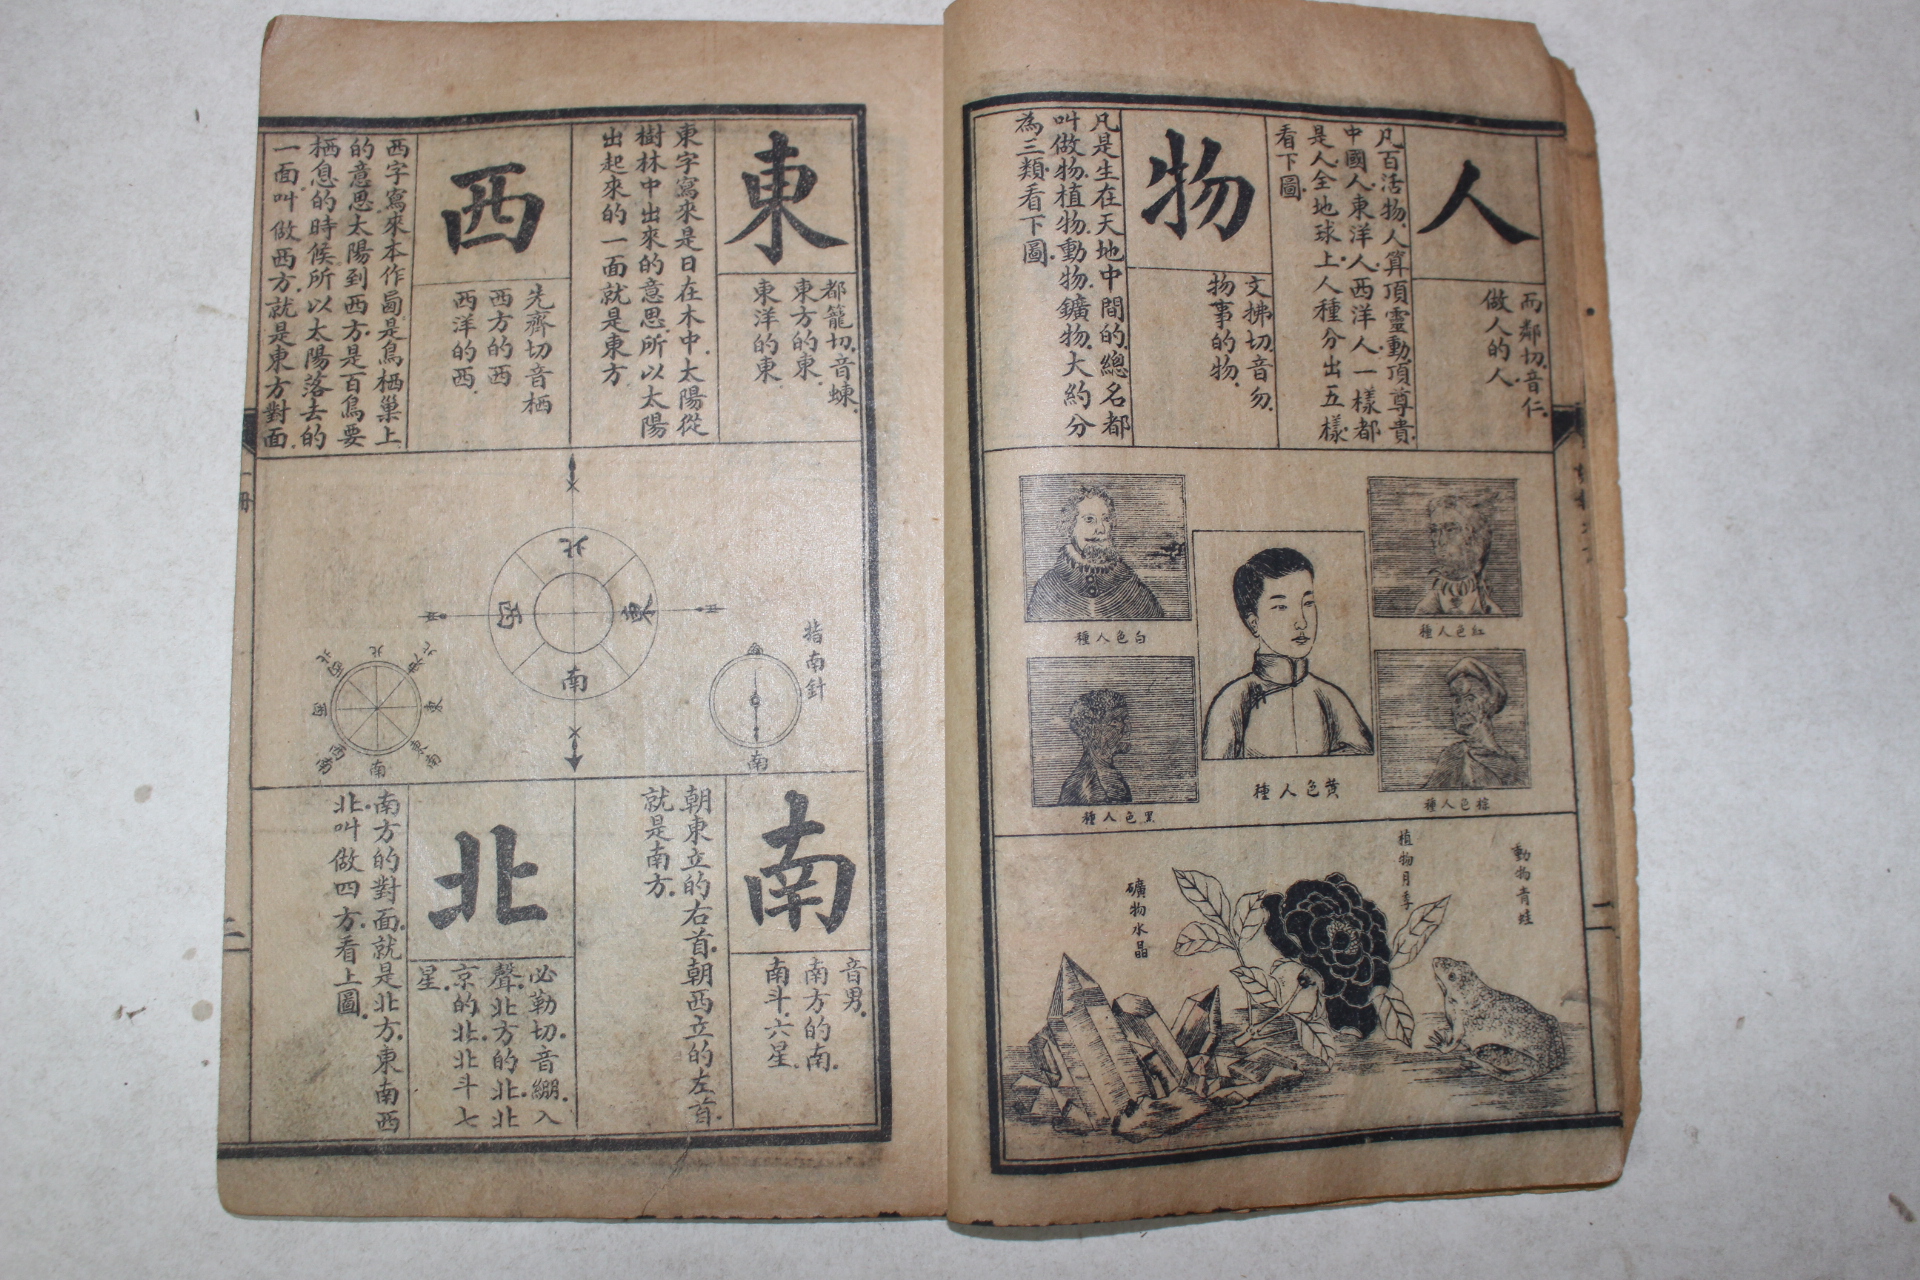 人
而鄰切.音仁.
做人的人
凡百活物.人算頂靈動頂尊貴.
中國人.東洋人西洋人一樣都
是人.全地球上人種分出五樣.
看下圖.
物
文拂切.音勿.
物事的物.
凡是生在天地中間的.總名都
叫做物.植物.動物.鑛物.大約分
為三類.看下圖.
紅色人種
白色人種
黃色人種
棕色人種
黑色人種
動物青蛙
植物月季
礦物水晶
二
東
都籠切.音蝀.
東方的東.
東洋的東.
東字寫來是日在木中.太陽從
樹林中出來的意思.所以太陽
出起來的一面就是東方.
西
先齊切音栖
西方的西
西洋的西.
西字寫來本作㢴.是鳥栖巢上
的意思太陽到西方.是百鳥要
栖息的時候所以太陽落去的
一面.叫做西方.就是東方對面.
北
東
南
西
指南針
南
北
東北
東
東南
南
西南
西
西北
南
音男.
南方的南.
南斗.六星.
朝東立的右首.朝西立的左首.
就是南方.
北
必勒切.音繃.入
聲.北方的北.北
京的北.北斗七
星.
南方的對面.就是北方.東南西
北.叫做四方.看上圖.
一冊
二